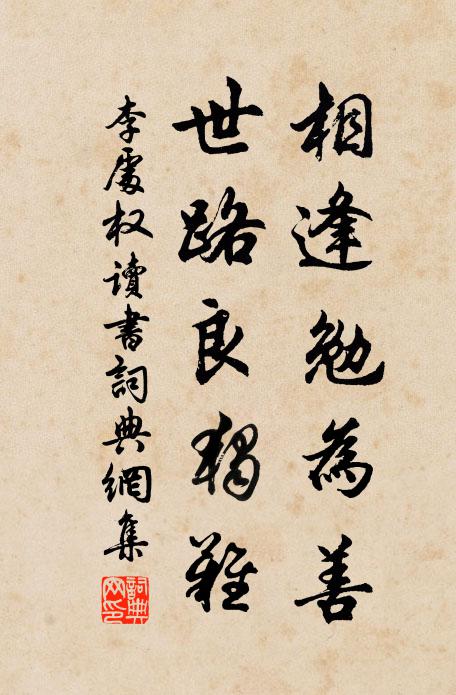 相逢勉為善
世路良獨難
李處权讀書詞典網集
詞典网印